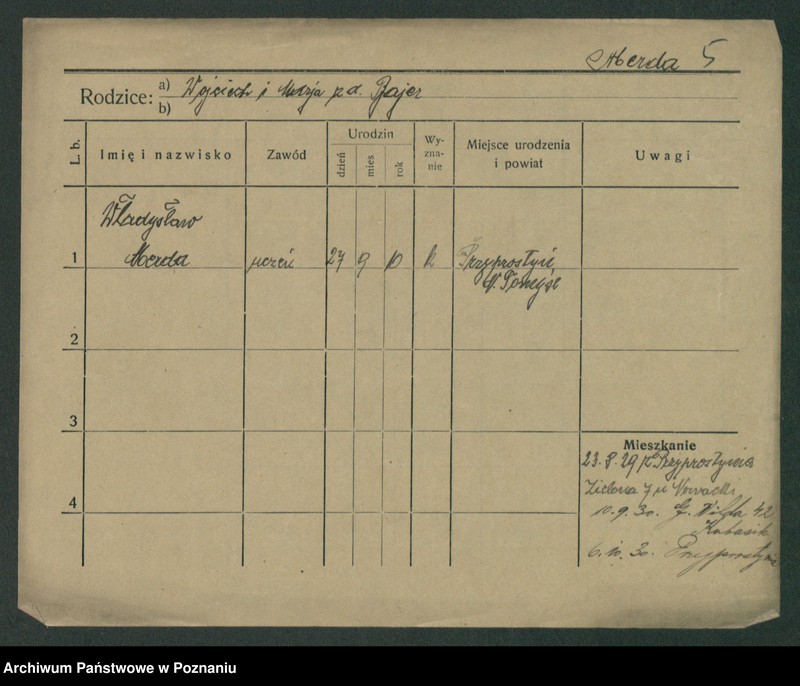 Merda 5
Rodzice: a) Wojciech i Marja z d. Bajer
b)
L. b. Imię i nazwisko Zawód Urodzin dzień mies rok Wy-zna-nie Miejsce urodzenia i powiat Uwagi
Władysław
1 Merda uczeń 27 9 10 k Przyprostyń
N. Tomyśl
2
3
Mieszkanie
23.8.29 z Przyprostynia
Zielona 7 u Nowacki
4
10.9.30. G. Wilda 42
Kubasik
6.10.30. Przyprostynia
Archiwum Państwowe w Poznaniu